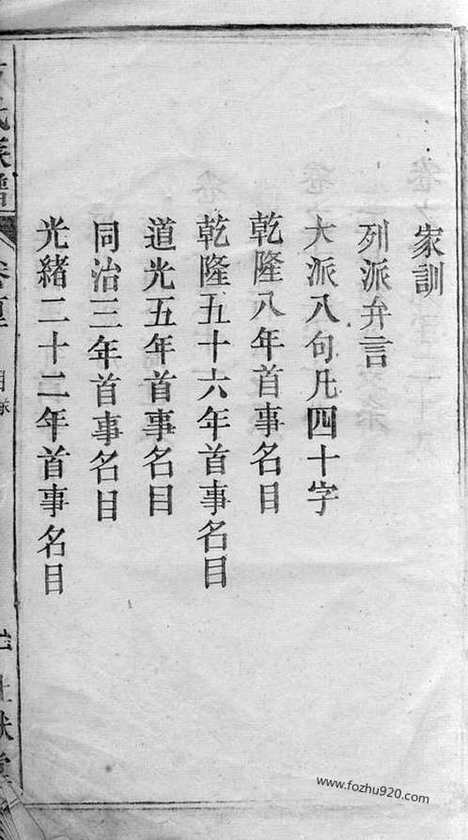 家訓
列派弁言
大派八句凡四十字
乾隆八年首事名目
乾隆五十六年首事名目
道光五年首事名目
同治三年首事名目
光緒二十二年首事名目
氏族譜
目錄
www.fozhu920.com